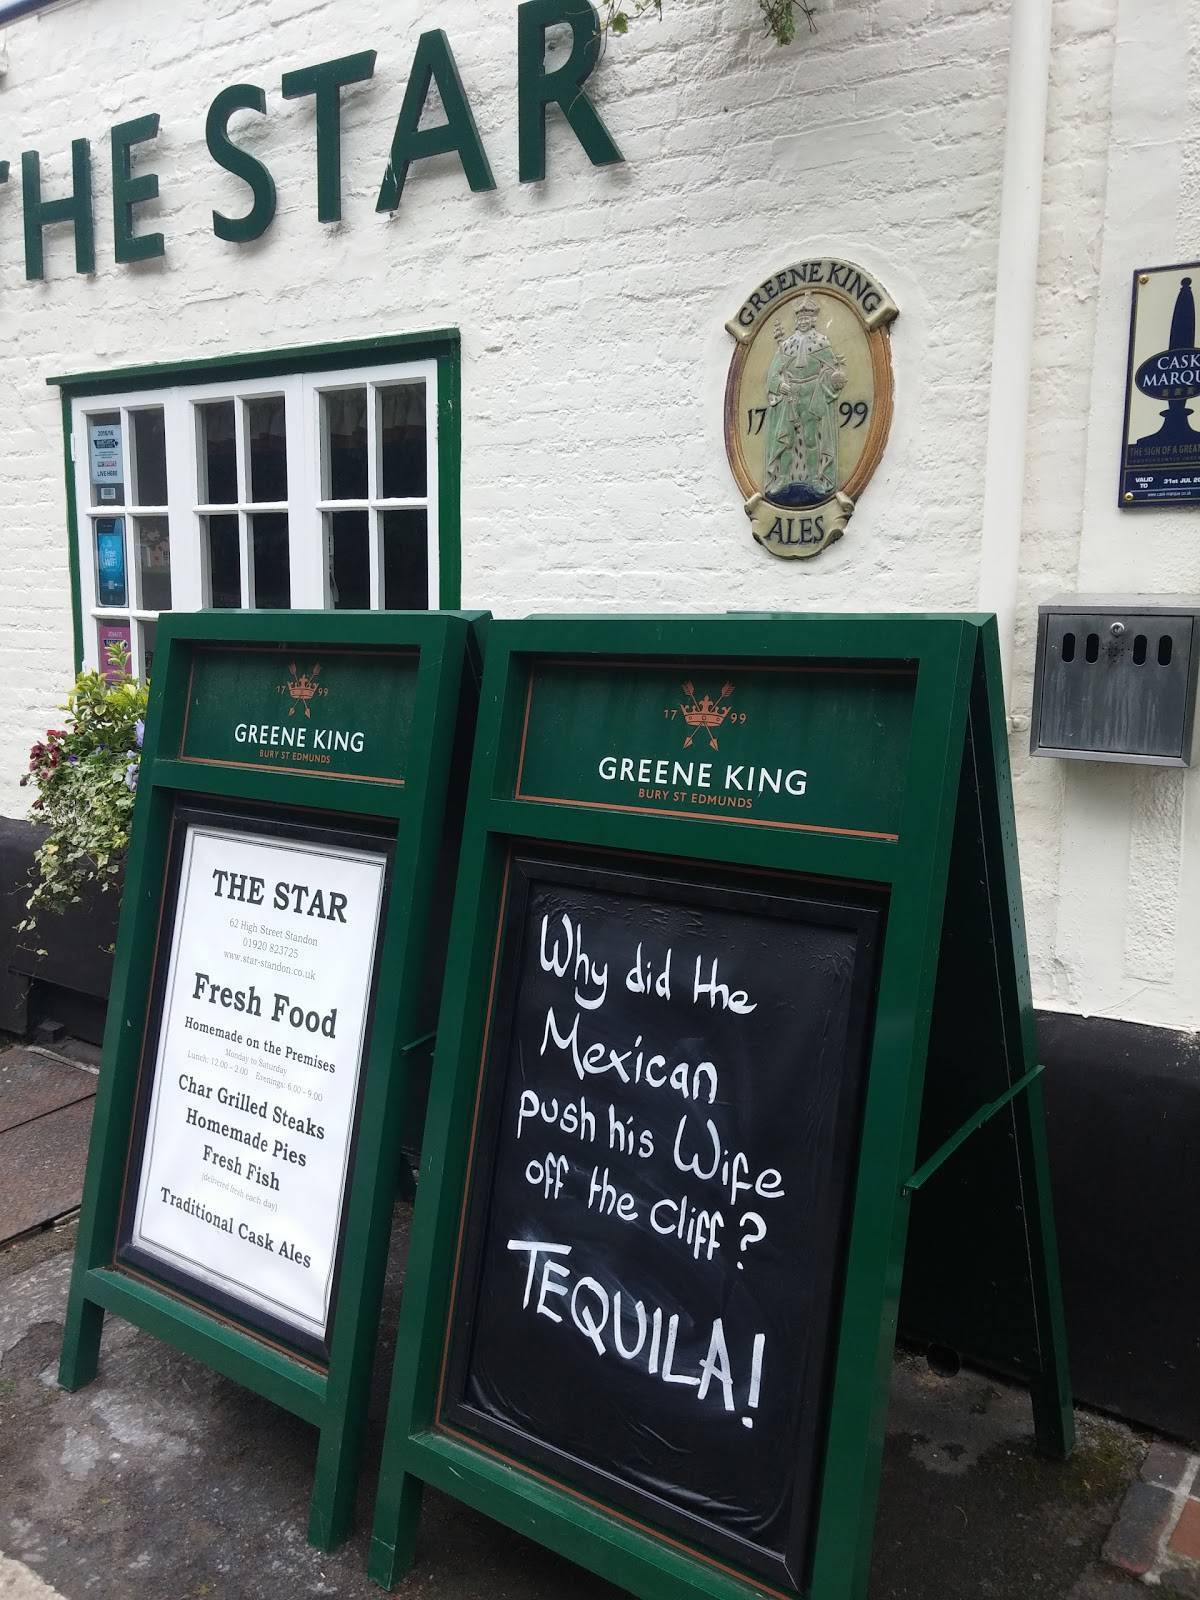 THE STAR
GREENE KING
17 99
ALES
CASK
MARQUE
THE SIGN OF A GREAT
VALID TO 31st JUL 20
2015/16
LIVE HERE
Free
WiFi
17 99
GREENE KING
BURY ST EDMUNDS
THE STAR
62 High Street Standon
01920 823725
www.star-standon.co.uk
Fresh Food
Homemade on the Premises
Monday to Saturday
Lunch: 12.00 - 2.00 Evenings: 6.00 - 9.00
Char Grilled Steaks
Homemade Pies
Fresh Fish
(delivered fresh each day)
Traditional Cask Ales
17 99
GREENE KING
BURY ST EDMUNDS
Why did the
Mexican
push his Wife
off the Cliff?
TEQUILA!